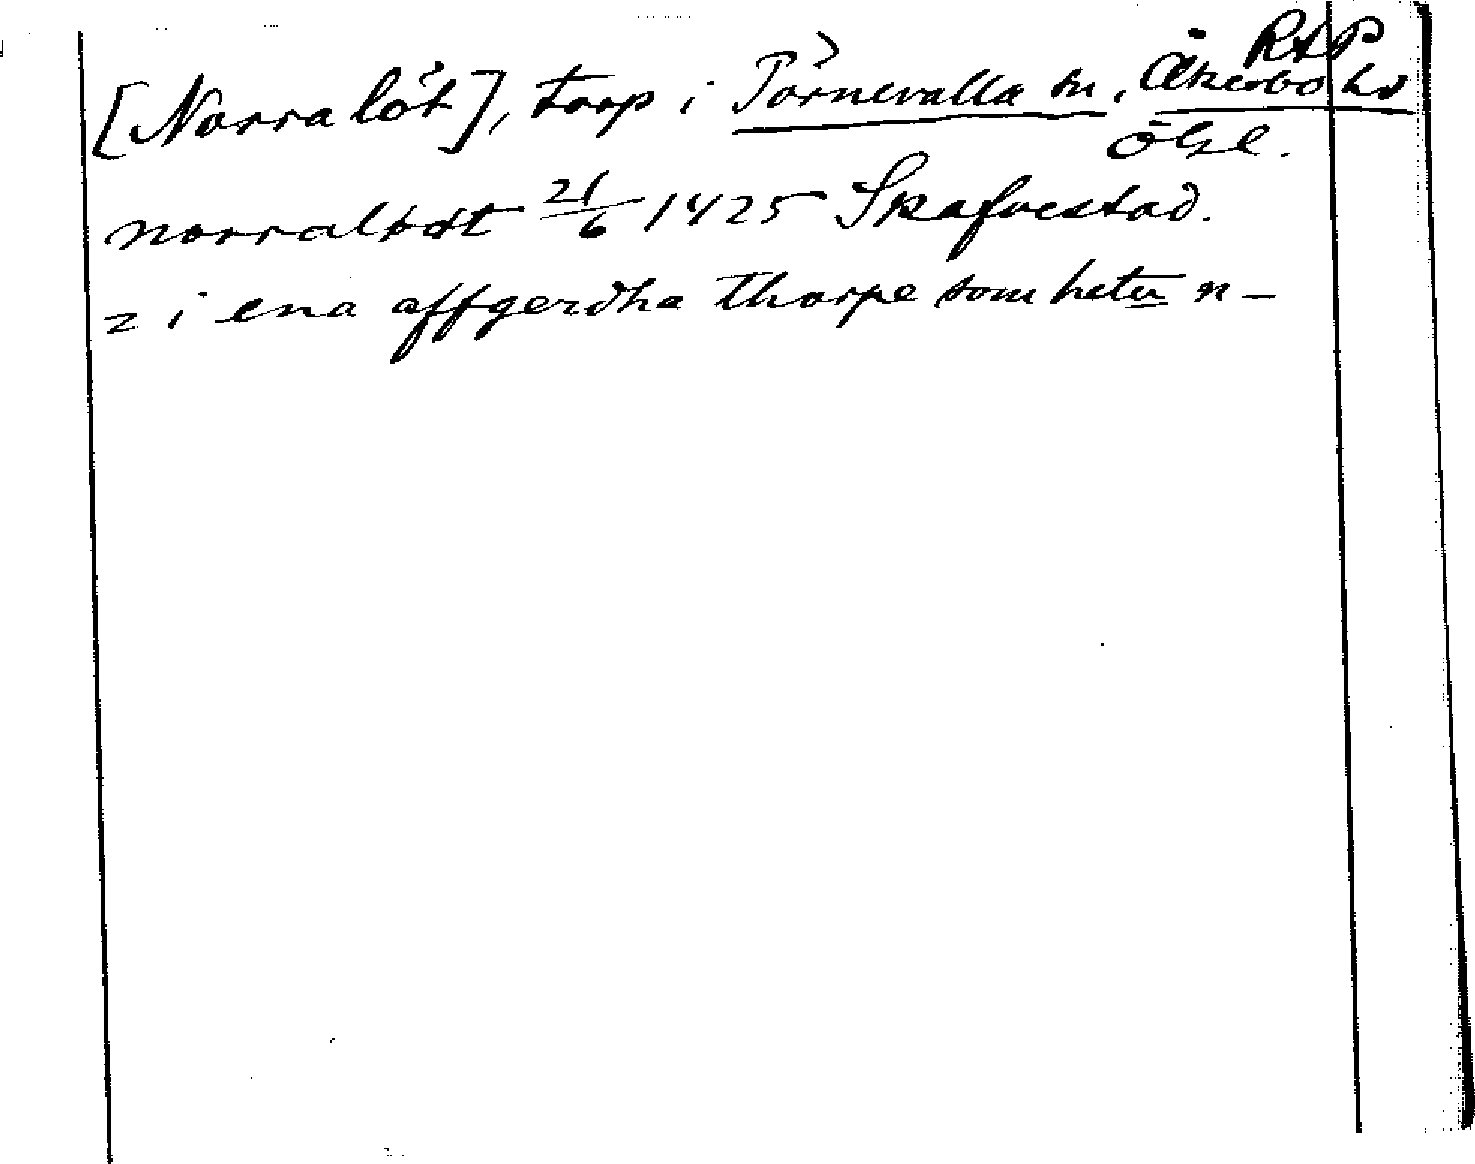 RAP
[Norra löt], torp i Törnevalla sn, Åkerbo hd
Ögl.
norraløøt 21/6 1425 Skafvestad.
2 i ena affgerdha thorpe som heter n–